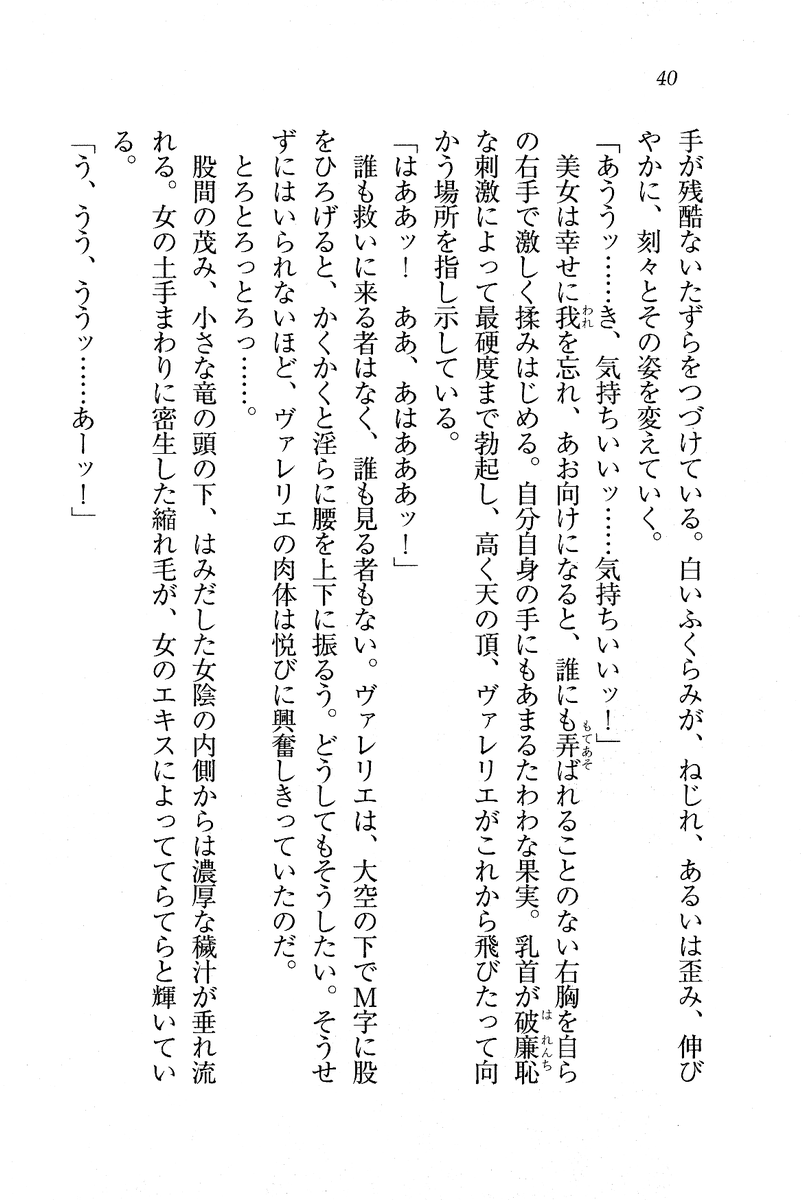 40
手が残酷ないたずらをつづけている。白いふくらみが、ねじれ、あるいは歪み、伸び
やかに、刻々とその姿を変えていく。
「あううッ……き、気持ちいいッ……気持ちいいッ！」
美女は幸せに我を忘れ、あお向けになると、誰にも弄ばれることのない右胸を自ら
の右手で激しく揉みはじめる。自分自身の手にもあまるたわわな果実。乳首が破廉恥
な刺激によって最硬度まで勃起し、高く天の頂、ヴァレリエがこれから飛びたって向
かう場所を指し示している。
「はああッ！　ああ、あはあああッ！」
誰も救いに来る者はなく、誰も見る者もない。ヴァレリエは、大空の下でM字に股
をひろげると、かくかくと淫らに腰を上下に振るう。どうしてもそうしたい。そうせ
ずにはいられないほど、ヴァレリエの肉体は悦びに興奮しきっていたのだ。
とろとろっとろっ……。
股間の茂み、小さな竜の頭の下、はみだした女陰の内側からは濃厚な穢汁が垂れ流
れる。女の土手まわりに密生した縮れ毛が、女のエキスによっててらてらと輝いてい
る。
「う、うう、ううッ……あーッ！」